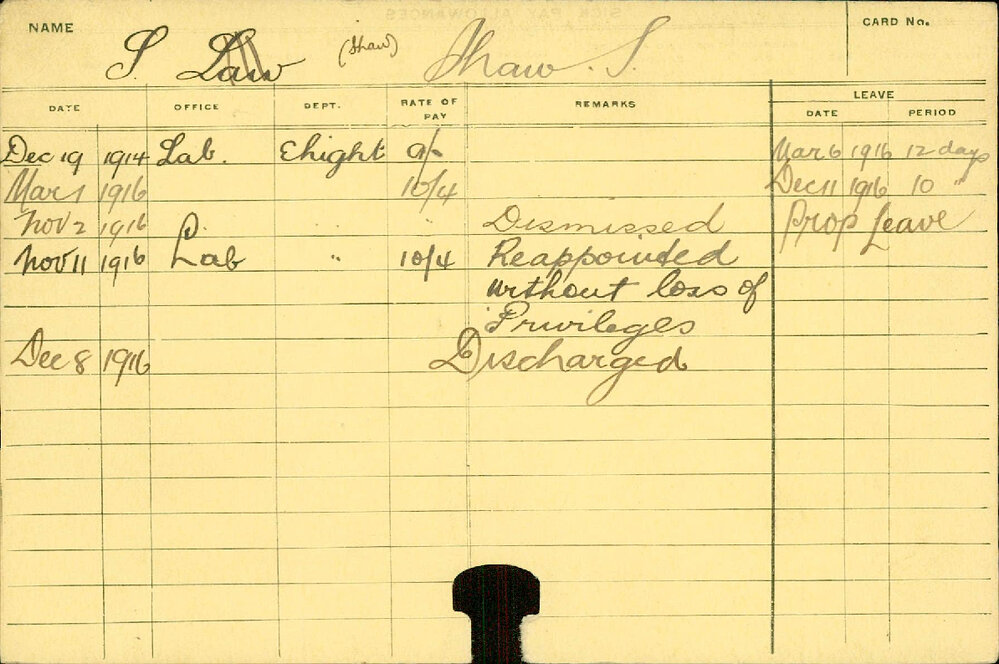 NAME S. Law (Shaw) Shaw. S. CARD No.
DATE OFFICE DEPT. RATE OF PAY REMARKS LEAVE
DATE PERIOD
Dec 19 1914 Lab. Ehight 9/- Mar 6 1916 12 days
Mar 1 1916 10/4 Dec 11 1916 10 "
Nov 2 1916 " " Dismissed Prop Leave
Nov 11 1916 Lab " 10/4 Reappointed
without loss of
Privileges
Dec 8 1916 Discharged